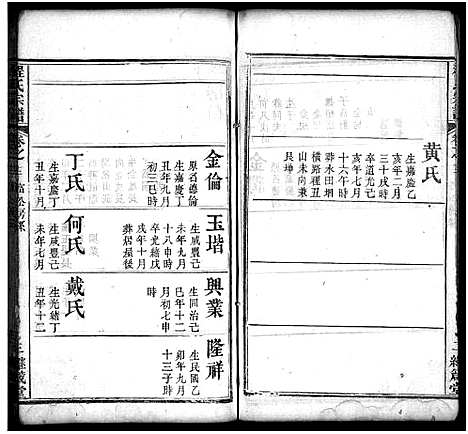 黄氏
生嘉慶乙
亥年二月
三十戌時
卒道光己
亥年十月
十六午時
葬水田垇
橫路程丑
山未向兼
艮坤
金倫
原名德倫
生嘉慶丁
丑年九月
初二巳時
丁氏
生嘉慶丁
丑年十月
玉堦
生咸豐己
未年九月
十八申時
卒光緒戌
戌年十月
葬居屋後
何氏
生咸豐己
未年七月
興業
生同治己
巳年十二
月初七申
時
戴氏
生光緒丁
丑年十二
隆祥
生民國乙
卯年九月
十三子時
氏宗譜
卷之